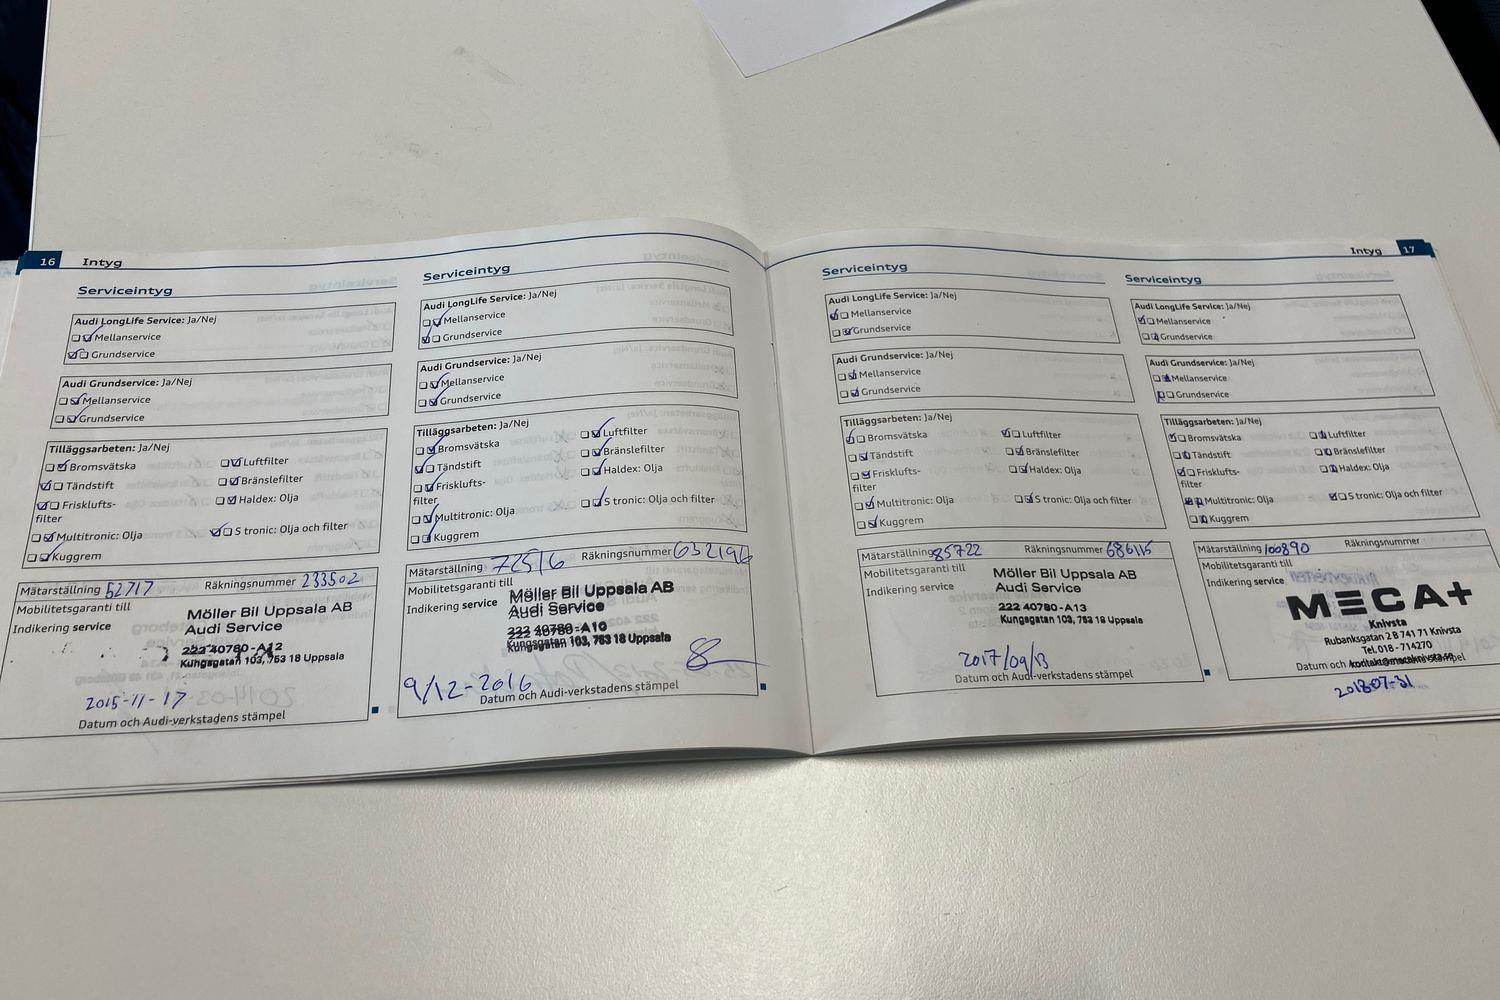 16 Intyg
Serviceintyg
Audi LongLife Service: Ja/Nej
Mellanservice
Grundservice
Audi Grundservice: Ja/Nej
Mellanservice
Grundservice
Tilläggsarbeten: Ja/Nej
Bromsvätska
Luftfilter
Tändstift
Bränslefilter
Frisklufts-
filter
Haldex: Olja
Multitronic: Olja
S tronic: Olja och filter
Kuggrem
Mätarställning 52717 Räkningsnummer 233502
Mobilitetsgaranti till
Indikering service
Möller Bil Uppsala AB
Audi Service
222 40780-A12
Kungsgatan 103, 753 18 Uppsala
2015-11-17
Datum och Audi-verkstadens stämpel
Serviceintyg
Audi LongLife Service: Ja/Nej
Mellanservice
Grundservice
Audi Grundservice: Ja/Nej
Mellanservice
Grundservice
Tilläggsarbeten: Ja/Nej
Bromsvätska
Luftfilter
Tändstift
Bränslefilter
Frisklufts-
filter
Haldex: Olja
Multitronic: Olja
S tronic: Olja och filter
Kuggrem
Mätarställning 72516 Räkningsnummer 632196
Mobilitetsgaranti till
Indikering service
Möller Bil Uppsala AB
Audi Service
222 40780-A10
Kungsgatan 103, 753 18 Uppsala
9/12-2016
Datum och Audi-verkstadens stämpel
Intyg 17
Serviceintyg
Audi LongLife Service: Ja/Nej
Mellanservice
Grundservice
Audi Grundservice: Ja/Nej
Mellanservice
Grundservice
Tilläggsarbeten: Ja/Nej
Bromsvätska
Luftfilter
Tändstift
Bränslefilter
Frisklufts-
filter
Haldex: Olja
Multitronic: Olja
S tronic: Olja och filter
Kuggrem
Mätarställning 85722 Räkningsnummer 686115
Mobilitetsgaranti till
Indikering service
Möller Bil Uppsala AB
Audi Service
222 40780-A13
Kungsgatan 103, 753 18 Uppsala
2017/09/13
Datum och Audi-verkstadens stämpel
Serviceintyg
Audi LongLife Service: Ja/Nej
Mellanservice
Grundservice
Audi Grundservice: Ja/Nej
Mellanservice
Grundservice
Tilläggsarbeten: Ja/Nej
Bromsvätska
Luftfilter
Tändstift
Bränslefilter
Frisklufts-
filter
Haldex: Olja
Multitronic: Olja
S tronic: Olja och filter
Kuggrem
Mätarställning 100890 Räkningsnummer
Mobilitetsgaranti till
Indikering service
MECA+
Knivsta
Rubanksgatan 2 B 741 71 Knivsta
Tel. 018 - 714270
Datum och stämpel
2018-07-31